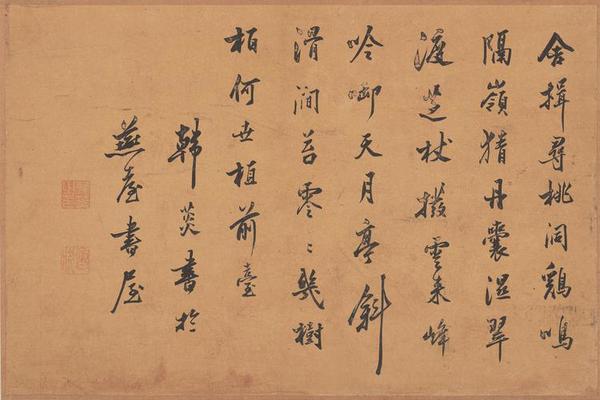 舍楫尋桃洞鷄鳴
隔嶺猜丹囊濕翠
渡芝杖撥雲来峰
吟啣天月亭斜
滑澗苔零〻幾樹
柏何世植前臺
韓菼書於
燕臺書屋